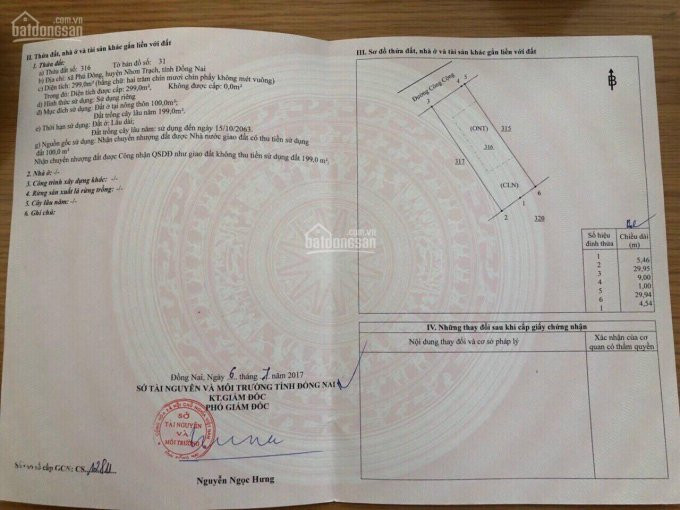 II. Thửa đất, nhà ở và tài sản khác gắn liền với đất
1. Thửa đất:
a) Thửa đất số: 316 Tờ bản đồ số: 31
b) Địa chỉ: xã Phú Đông, huyện Nhơn Trạch, tỉnh Đồng Nai
c) Diện tích: 299,0m² (bằng chữ: hai trăm chín mươi chín phẩy không mét vuông)
Trong đó: Diện tích được cấp: 299,0m²; Không được cấp: 0,0m²
d) Hình thức sử dụng: Sử dụng riêng
đ) Mục đích sử dụng: Đất ở tại nông thôn 100,0m²;
Đất trồng cây lâu năm 199,0m².
e) Thời hạn sử dụng: Đất ở: Lâu dài;
Đất trồng cây lâu năm: sử dụng đến ngày 15/10/2063.
g) Nguồn gốc sử dụng: Nhận chuyển nhượng đất được Nhà nước giao đất có thu tiền sử dụng
đất 100,0 m²
Nhận chuyển nhượng đất được Công nhận QSDĐ như giao đất không thu tiền sử dụng đất 199,0 m².
2. Nhà ở: -/-
3. Công trình xây dựng khác: -/-
4. Rừng sản xuất là rừng trồng: -/-
5. Cây lâu năm: -/-
6. Ghi chú:
Đồng Nai, Ngày 6 tháng 7 năm 2017
SỞ TÀI NGUYÊN VÀ MÔI TRƯỜNG TỈNH ĐỒNG NAI
KT.GIÁM ĐỐC
PHÓ GIÁM ĐỐC
SỞ
TÀI NGUYÊN
VÀ
MÔI TRƯỜNG
Nguyễn Ngọc Hưng
Số vào sổ cấp GCN: CS
III. Sơ đồ thửa đất, nhà ở và tài sản khác gắn liền với đất
B
Đường Công Cộng
3
4
5
(ONT)
315
316
317
(CLN)
6
1
2
320
Số hiệu đỉnh thửa
Chiều dài (m)
1
5,46
2
29,95
3
9,00
4
1,00
5
29,94
6
4,54
1
IV. Những thay đổi sau khi cấp giấy chứng nhận
Nội dung thay đổi và cơ sở pháp lý
Xác nhận của cơ
quan có thẩm quyền
batdongsan
.com.vn
batdongsan
.com.vn
batdongsan
.com.vn